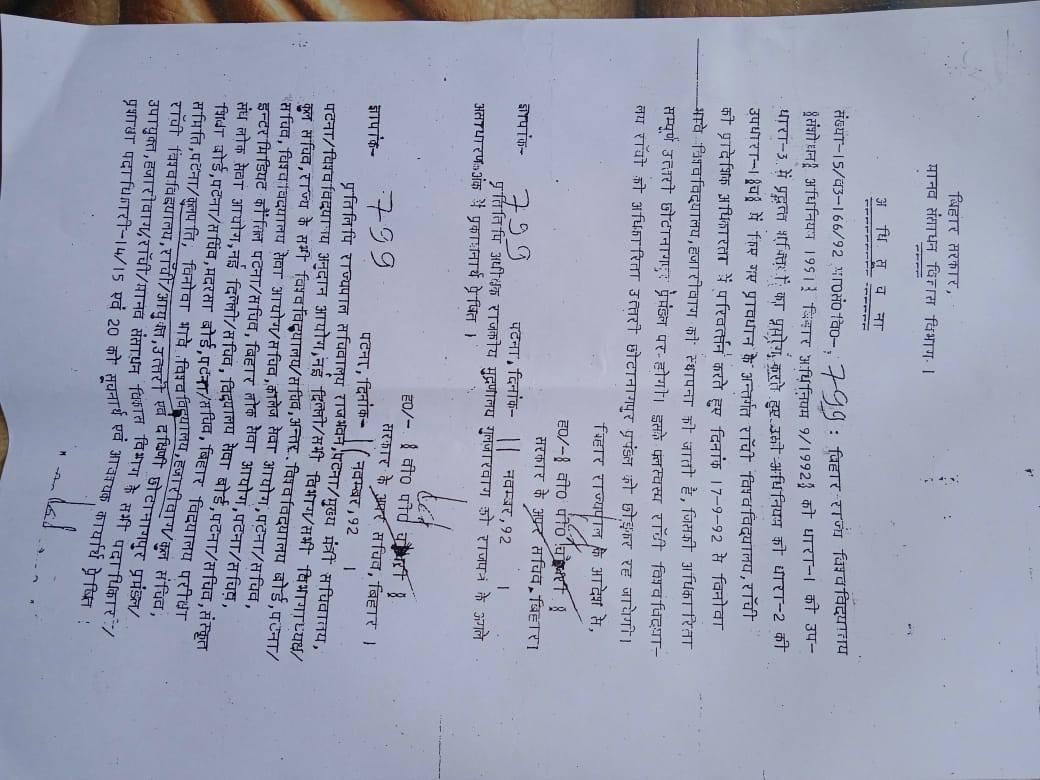 बिहार सरकार,
मानव संसाधन विकास विभाग ।
अ धि सू च ना
संख्या-15/घ3-166/92 मा0सं0वि0-: 799 : बिहार राज्य विश्वविद्यालय
§संशोधन§ अधिनियम 1991 § बिहार अधिनियम 9/1992§ की धारा-1 की उप-
धारा-3 में प्रदत्त शक्तियों का प्रयोग करते हुए उक्त अधिनियम की धारा-2 की
उपधारा-1 में किए गए प्रावधान के अन्तर्गत राँची विश्वविद्यालय, राँची
की प्रादेशिक अधिकारिता में परिवर्तन करते हुए दिनांक 17-9-92 से विनोबा
भावे विश्वविद्यालय, हजारीबाग की स्थापना की जाती है, जिसकी अधिकारिता
सम्पूर्ण उत्तरी छोटानागपुर प्रमंडल पर होगी। इसके फलस्वरूप राँची विश्वविद्या-
लय राँची की अधिकारिता उत्तरी छोटानागपुर प्रमंडल को छोड़कर रह जायेगी।
बिहार राज्यपाल के आदेश से,
ह0/-§ वी0 पी0 §
सरकार के अपर सचिव, बिहार।
ज्ञापांक- 799 पटना, दिनांक- 11 नवम्बर, 92 ।
प्रतिलिपि अधीक्षक राजकीय मुद्रणालय गुलजारबाग को राजपत्र के अगले
असाधारण अंक में प्रकाशनार्थ प्रेषित ।
ह0/- § वी0 पी0 §
सरकार के अपर सचिव, बिहार ।
ज्ञापांक- 799 पटना, दिनांक- 11 नवम्बर, 92 ।
प्रतिलिपि राज्यपाल सचिवालय राजभवन, पटना/मुख्य मंत्री सचिवालय,
पटना/विश्वविद्यालय अनुदान आयोग, नई दिल्ली/सभी विभाग/सभी विभागाध्यक्ष/
कुल सचिव, राज्य के सभी विश्वविद्यालय/सचिव, अन्तर विश्वविद्यालय बोर्ड, पटना/
सचिव, विश्वविद्यालय सेवा आयोग/सचिव, कालेज सेवा आयोग, पटना/सचिव,
इन्टरमिडियट कौंसिल पटना/सचिव, बिहार लोक सेवा आयोग, पटना/सचिव,
संघ लोक सेवा आयोग, नई दिल्ली/सचिव, विद्यालय सेवा बोर्ड, पटना/सचिव,
शिक्षा बोर्ड, पटना/सचिव, मदरसा बोर्ड, पटना/सचिव, बिहार विद्यालय परीक्षा
समिति, पटना/कुलपति, विनोबा भावे विश्वविद्यालय, हजारीबाग/कुल सचिव,
राँची विश्वविद्यालय, राँची/आयुक्त, उत्तरी एवं दक्षिणी छोटानागपुर प्रमंडल/
उपायुक्त, हजारीबाग/राँची/मानव संसाधन विकास विभाग के सभी पदाधिकारी/
प्रशाखा पदाधिकारी-14/15 एवं 20 को सूचनार्थ एवं आवश्यक कार्यार्थ प्रेषित :